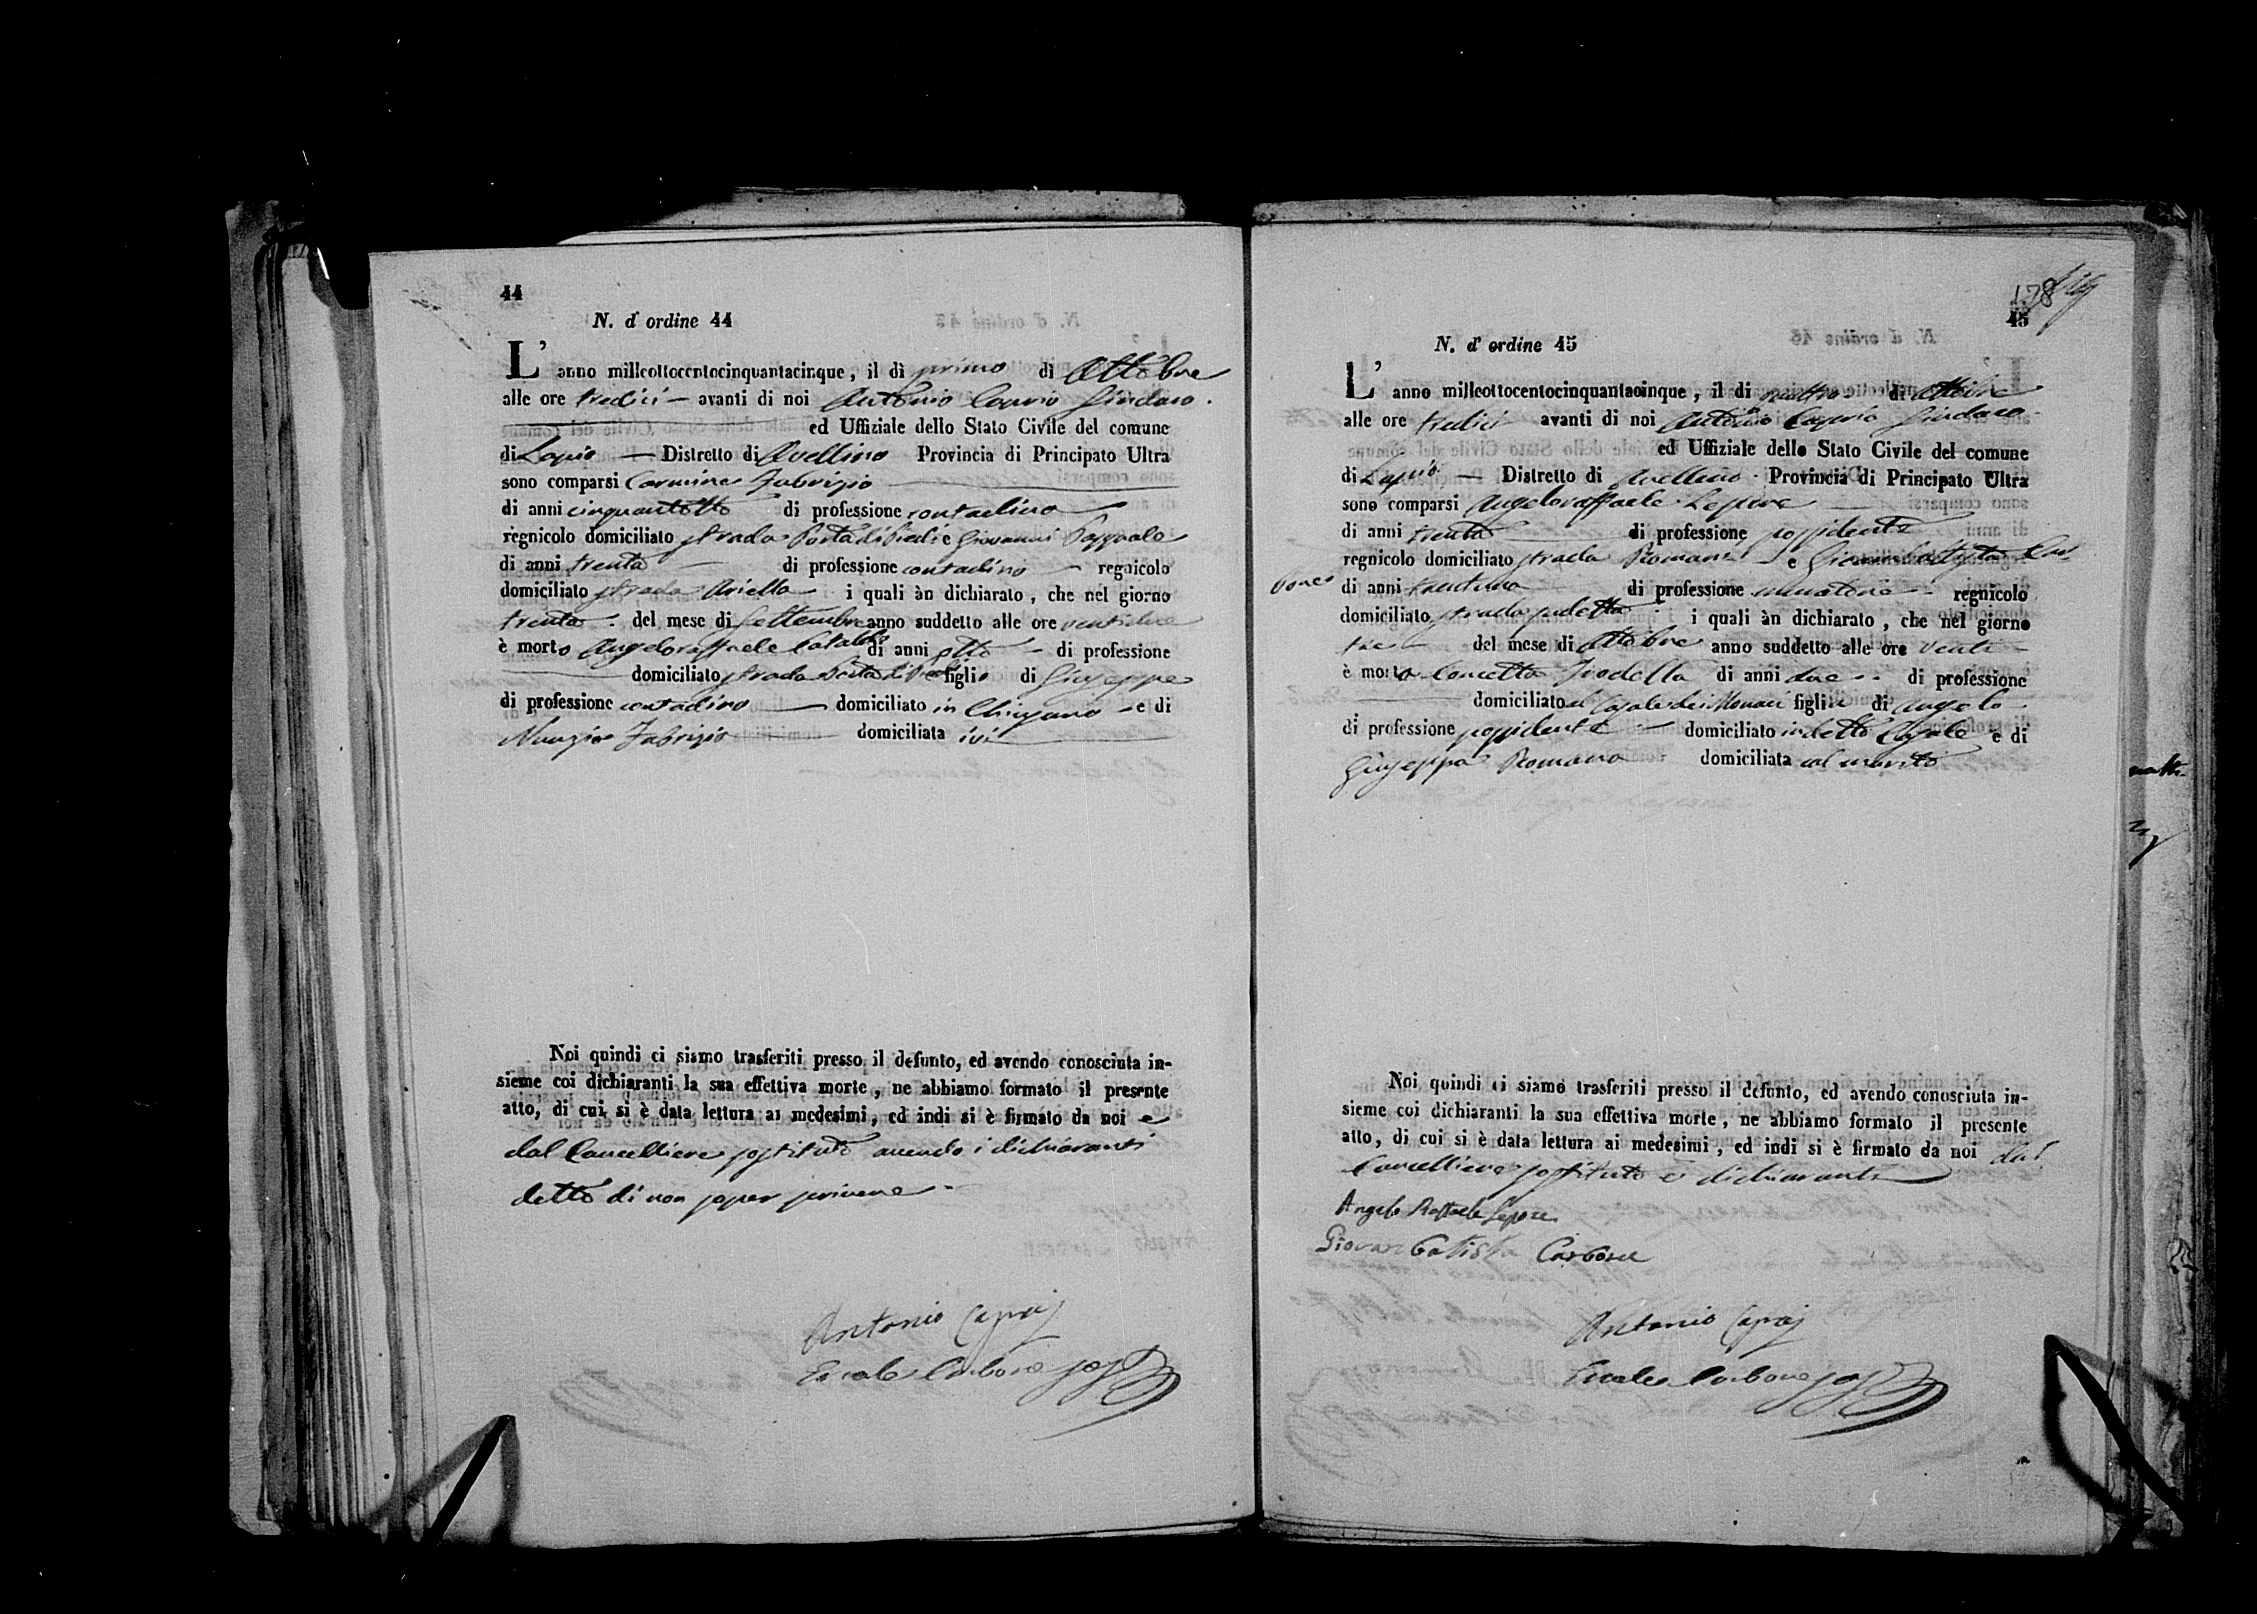 44
N. d'ordine 44
L'anno milleottocentocinquantacinque, il dì primo di Ottobre
alle ore tredici — avanti di noi Antonio Caprio Sindaco.
ed Uffiziale dello Stato Civile del comune
di Lapio — Distretto di Avellino Provincia di Principato Ultra
sono comparsi Carmine Fabrizio
di anni cinquantotto di professione contadino
regnicolo domiciliato strada Porta di Piedi e Giovanni
di anni trenta — di professione contadino — regnicolo
domiciliato strada Ariella i quali àn dichiarato, che nel giorno
trenta — del mese di Settembre anno suddetto alle ore ventidue
è morto Angeloraffaele Cataldo di anni otto — di professione
domiciliato strada Porta di figlio di Giuseppe
di professione contadino — domiciliato in Chiusano — e di
Nunzia Fabrizio domiciliata ivi
Noi quindi ci siamo trasferiti presso il defunto, ed avendo conosciuta in-
sieme coi dichiaranti la sua effettiva morte, ne abbiamo formato il presente
atto, di cui si è data lettura ai medesimi, ed indi si è firmato da noi e
dal Cancelliere sostituto avendo i dichiaranti
detto di non saper scrivere
Antonio Caprij
Ercole Carbone
138
45
N. d'ordine 45
L'anno milleottocentocinquantacinque, il dì quattro di Ottobre
alle ore tredici avanti di noi Antonio Caprio Sindaco
ed Uffiziale dello Stato Civile del comune
di Lapio — Distretto di Avellino Provincia di Principato Ultra
sono comparsi Angeloraffaele Lepore
di anni trenta di professione possidente
regnicolo domiciliato strada Romani e Giambattista Car-
bone di anni trentuno di professione muratore regnicolo
domiciliato strada sudetta i quali àn dichiarato, che nel giorno
tre — del mese di Ottobre anno suddetto alle ore venti
è morta Concetta Trodella di anni due di professione
domiciliato Casale dei Monaci figlia di Angelo
di professione possidente — domiciliato in detto Casale e di
Giuseppa Romano domiciliata col marito
Noi quindi ci siamo trasferiti presso il defunto, ed avendo conosciuta in-
sieme coi dichiaranti la sua effettiva morte, ne abbiamo formato il presente
atto, di cui si è data lettura ai medesimi, ed indi si è firmato da noi dal
Cancelliere sostituto e dichiaranti
Angelo Raffaele Lepore
Giovan Batista Carbone
Antonio Caprij
Ercole Carbone